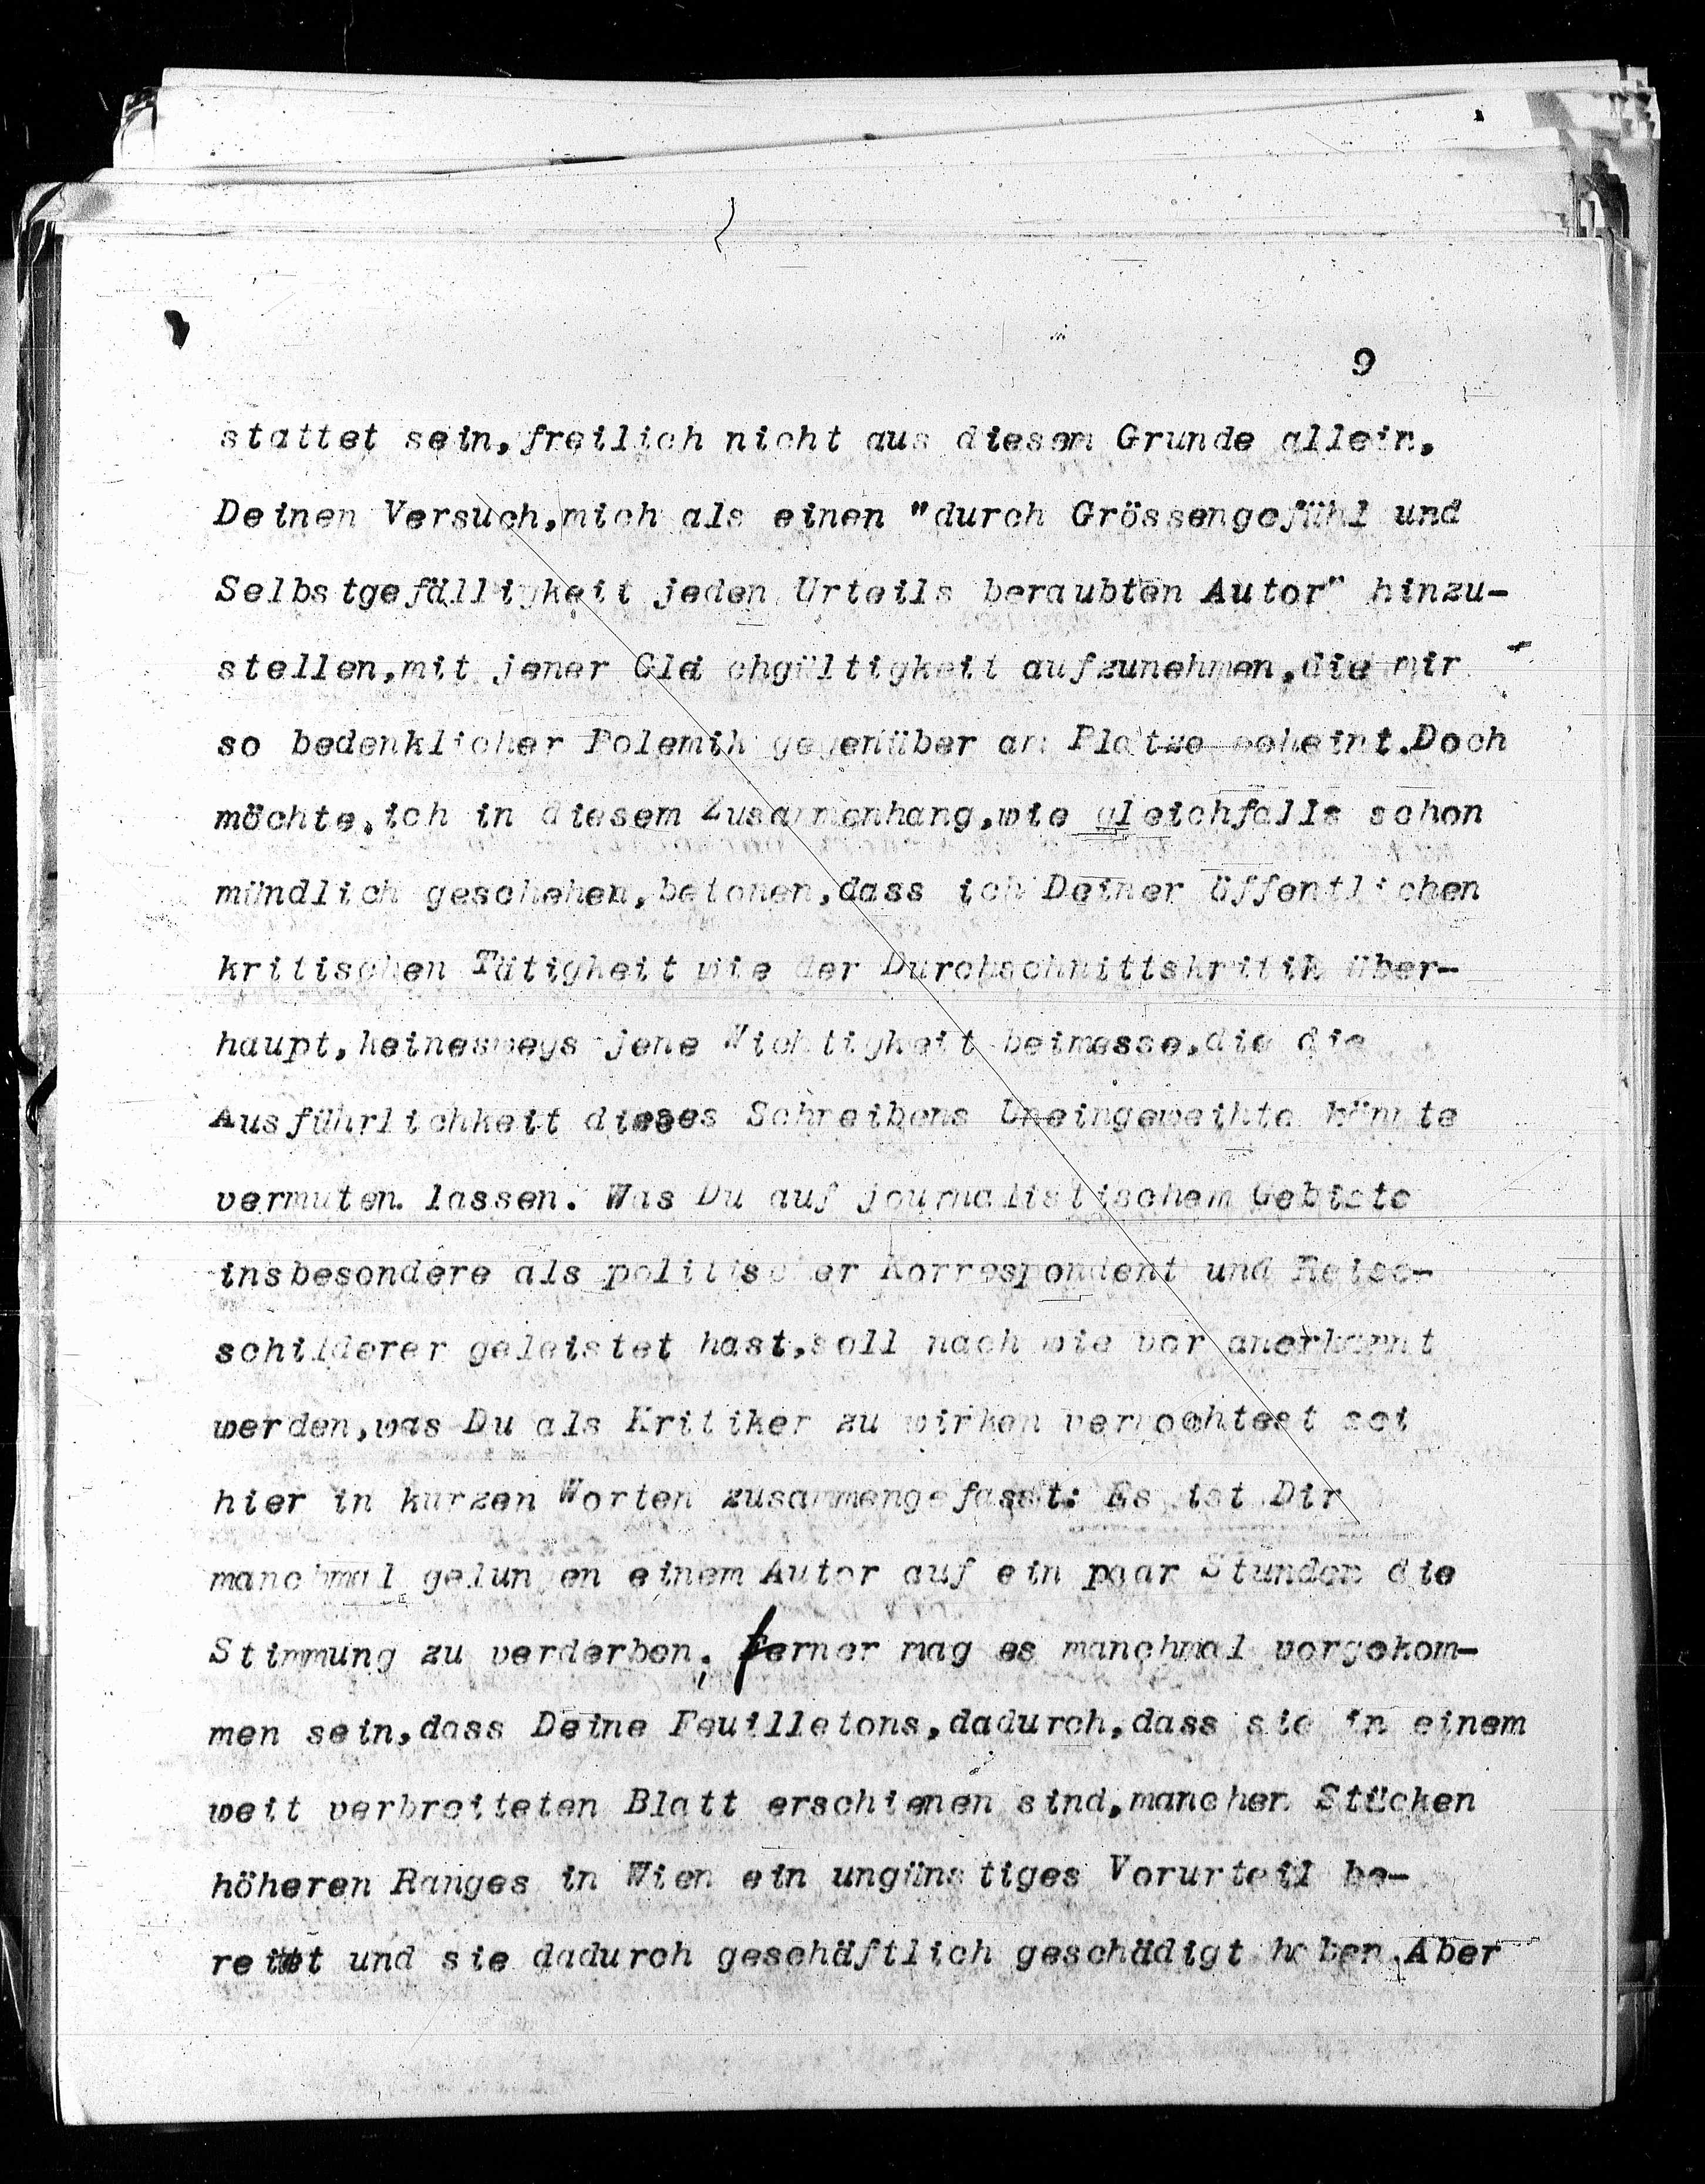 9
stattet sein, freilich nicht aus diesem Grunde allein,
Deinen Versuch,mich als einen "durch Grössengefühl und
Selbstgefälligkeit jeden Urteils beraubten Autor" hinzu-
stellen,mit jener Gleichgültigkeit aufzunehmen,die mir
so bedenklicher Polemik gegenüber am Platze scheint.Doch
möchte,ich in diesem Zusammenhang,wie gleichfalls schon
mündlich geschehen,betonen,dass ich Deiner öffentlichen
kritischen Tätigkeit wie der Durchschnittskritik über-
haupt,keineswegs jene Wichtigkeit beimesse,die die
Ausführlichkeit dieses Schreibens Uneingeweihte könnte
vermuten lassen. Was Du auf journalistischem Gebiete
insbesondere als politischer Korrespondent und Reise-
schilderer geleistet hast,soll nach wie vor anerkannt
werden,was Du als Kritiker zu wirken vermochtest sei
hier in kurzen Worten zusammengefasst: Es ist Dir
manchmal gelungen einem Autor auf ein paar Stunden die
Stimmung zu verderben; ferner mag es manchmal vorgekom-
men sein,dass Deine Feuilletons,dadurch,dass sie in einem
weit verbreiteten Blatt erschienen sind,manchen Stücken
höheren Ranges in Wien ein ungünstiges Vorurteil be-
reitet und sie dadurch geschäftlich geschädigt haben.Aber